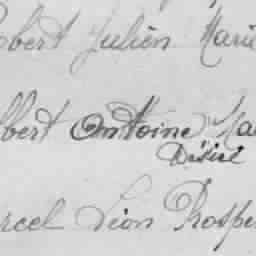 obert Julien Marie
lbert Antoine Ma
Désiré
rcel Léon Prosper